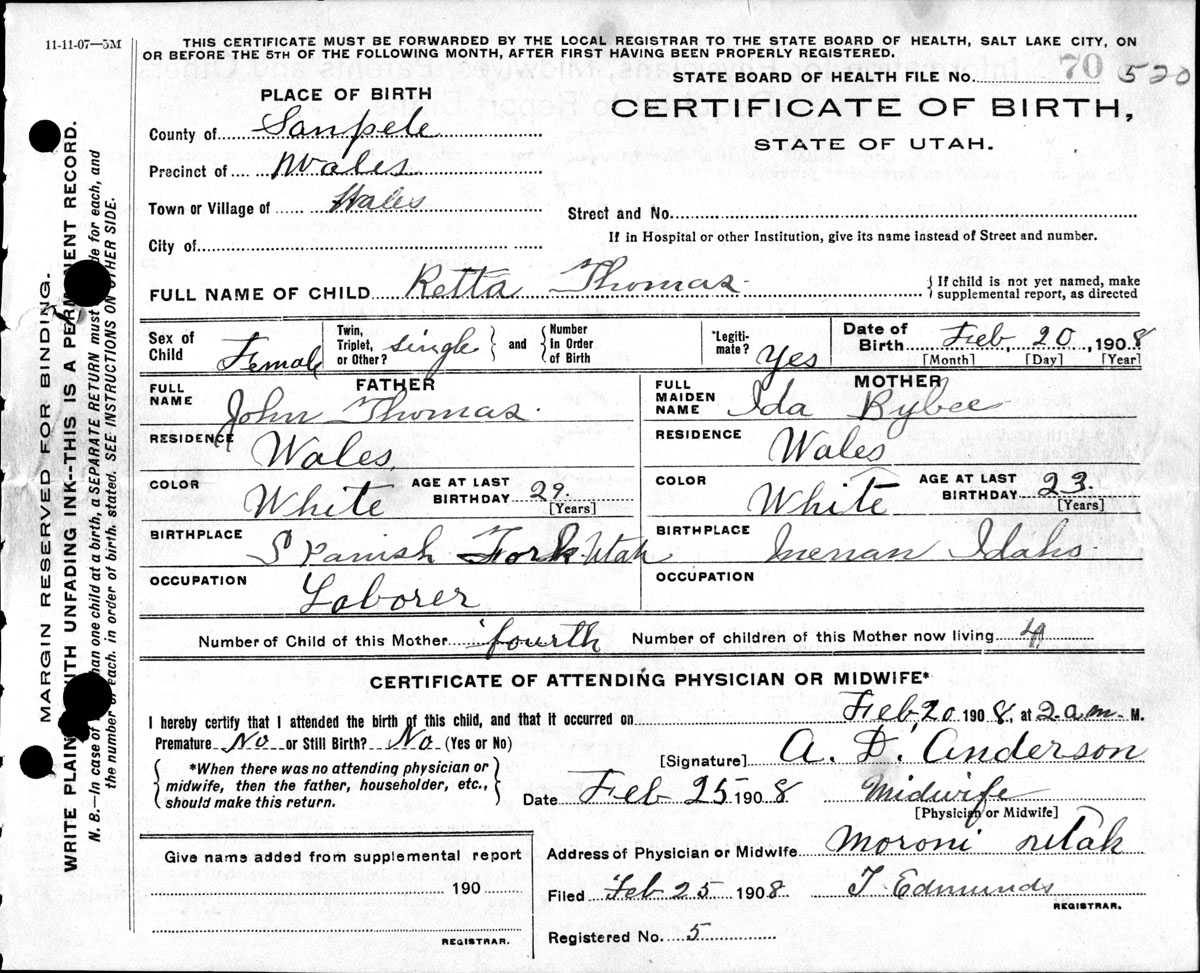 11-11-07—5M
THIS CERTIFICATE MUST BE FORWARDED BY THE LOCAL REGISTRAR TO THE STATE BOARD OF HEALTH, SALT LAKE CITY, ON
OR BEFORE THE 5TH OF THE FOLLOWING MONTH, AFTER FIRST HAVING BEEN PROPERLY REGISTERED.
STATE BOARD OF HEALTH FILE NO. 70 520
PLACE OF BIRTH
CERTIFICATE OF BIRTH,
STATE OF UTAH.
County of Sanpete
Precinct of Wales
Town or Village of Wales
Street and No.
City of
If in Hospital or other Institution, give its name instead of Street and number.
FULL NAME OF CHILD Retta Thomas
{ If child is not yet named, make
supplemental report, as directed
Sex of Child Female
Twin, Triplet, or Other? single } and { Number In Order of Birth
*Legiti-mate? Yes
Date of Birth Feb 20, 1908
[Month] [Day] [Year]
FATHER
FULL NAME John Thomas
RESIDENCE Wales
COLOR White AGE AT LAST BIRTHDAY 29
[Years]
BIRTHPLACE Spanish Fork Utah
OCCUPATION Laborer
MOTHER
FULL MAIDEN NAME Ida Rybee
RESIDENCE Wales
COLOR White AGE AT LAST BIRTHDAY 23
[Years]
BIRTHPLACE Menan Idaho
OCCUPATION
Number of Child of this Mother fourth Number of children of this Mother now living 4
CERTIFICATE OF ATTENDING PHYSICIAN OR MIDWIFE*
I hereby certify that I attended the birth of this child, and that it occurred on Feb 20 1908, at 2 a.m. M.
Premature No or Still Birth? No (Yes or No)
{ *When there was no attending physician or
midwife, then the father, householder, etc.,
should make this return. }
[Signature] A. D. Anderson
Date Feb 25 1908 Midwife
[Physician or Midwife]
Give name added from supplemental report
190
REGISTRAR.
Address of Physician or Midwife Moroni Utah
Filed Feb 25 1908. T Edmunds
REGISTRAR.
Registered No. 5
MARGIN RESERVED FOR BINDING.
WRITE PLAINLY WITH UNFADING INK--THIS IS A PERMANENT RECORD.
N. B.—In case of more than one child at birth, a SEPARATE RETURN must be made for each, and
the number of each, in order of birth, stated. SEE INSTRUCTIONS ON OTHER SIDE.